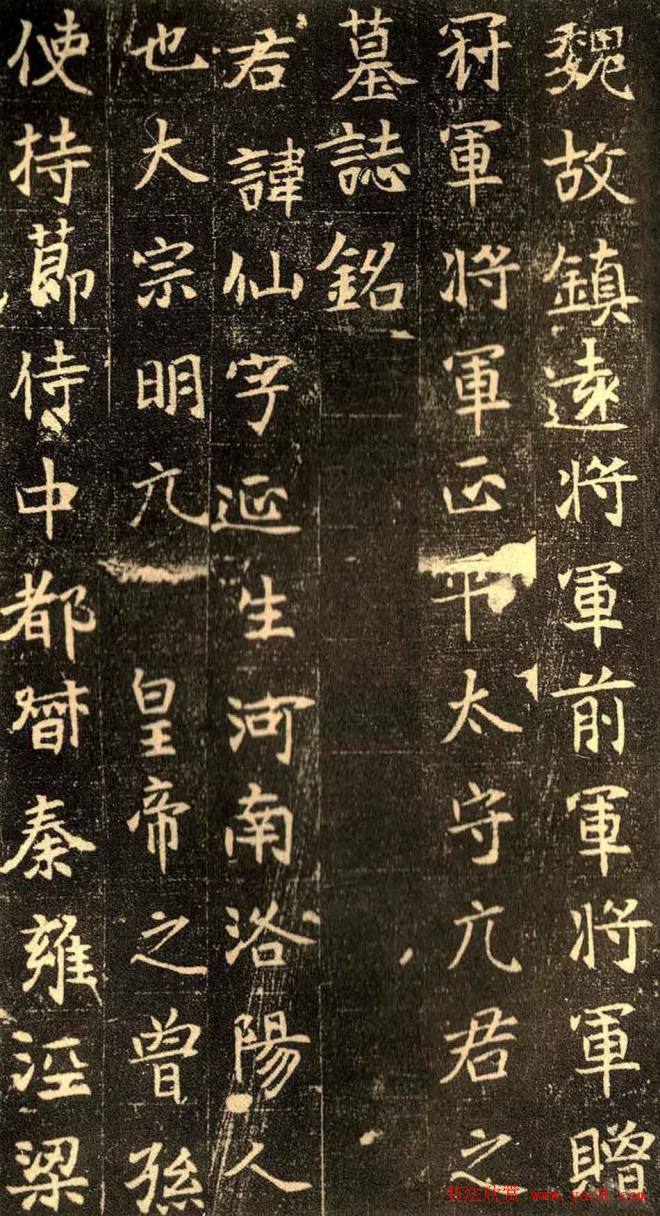 魏故鎮遠將軍前軍將軍贈
冠軍將軍正平太守元君之
墓誌銘
君諱仙字延生河南洛陽人
也大宗明元 皇帝之曾孫
使持節侍中都督秦雍涇梁
书法欣赏 www.yac8.com